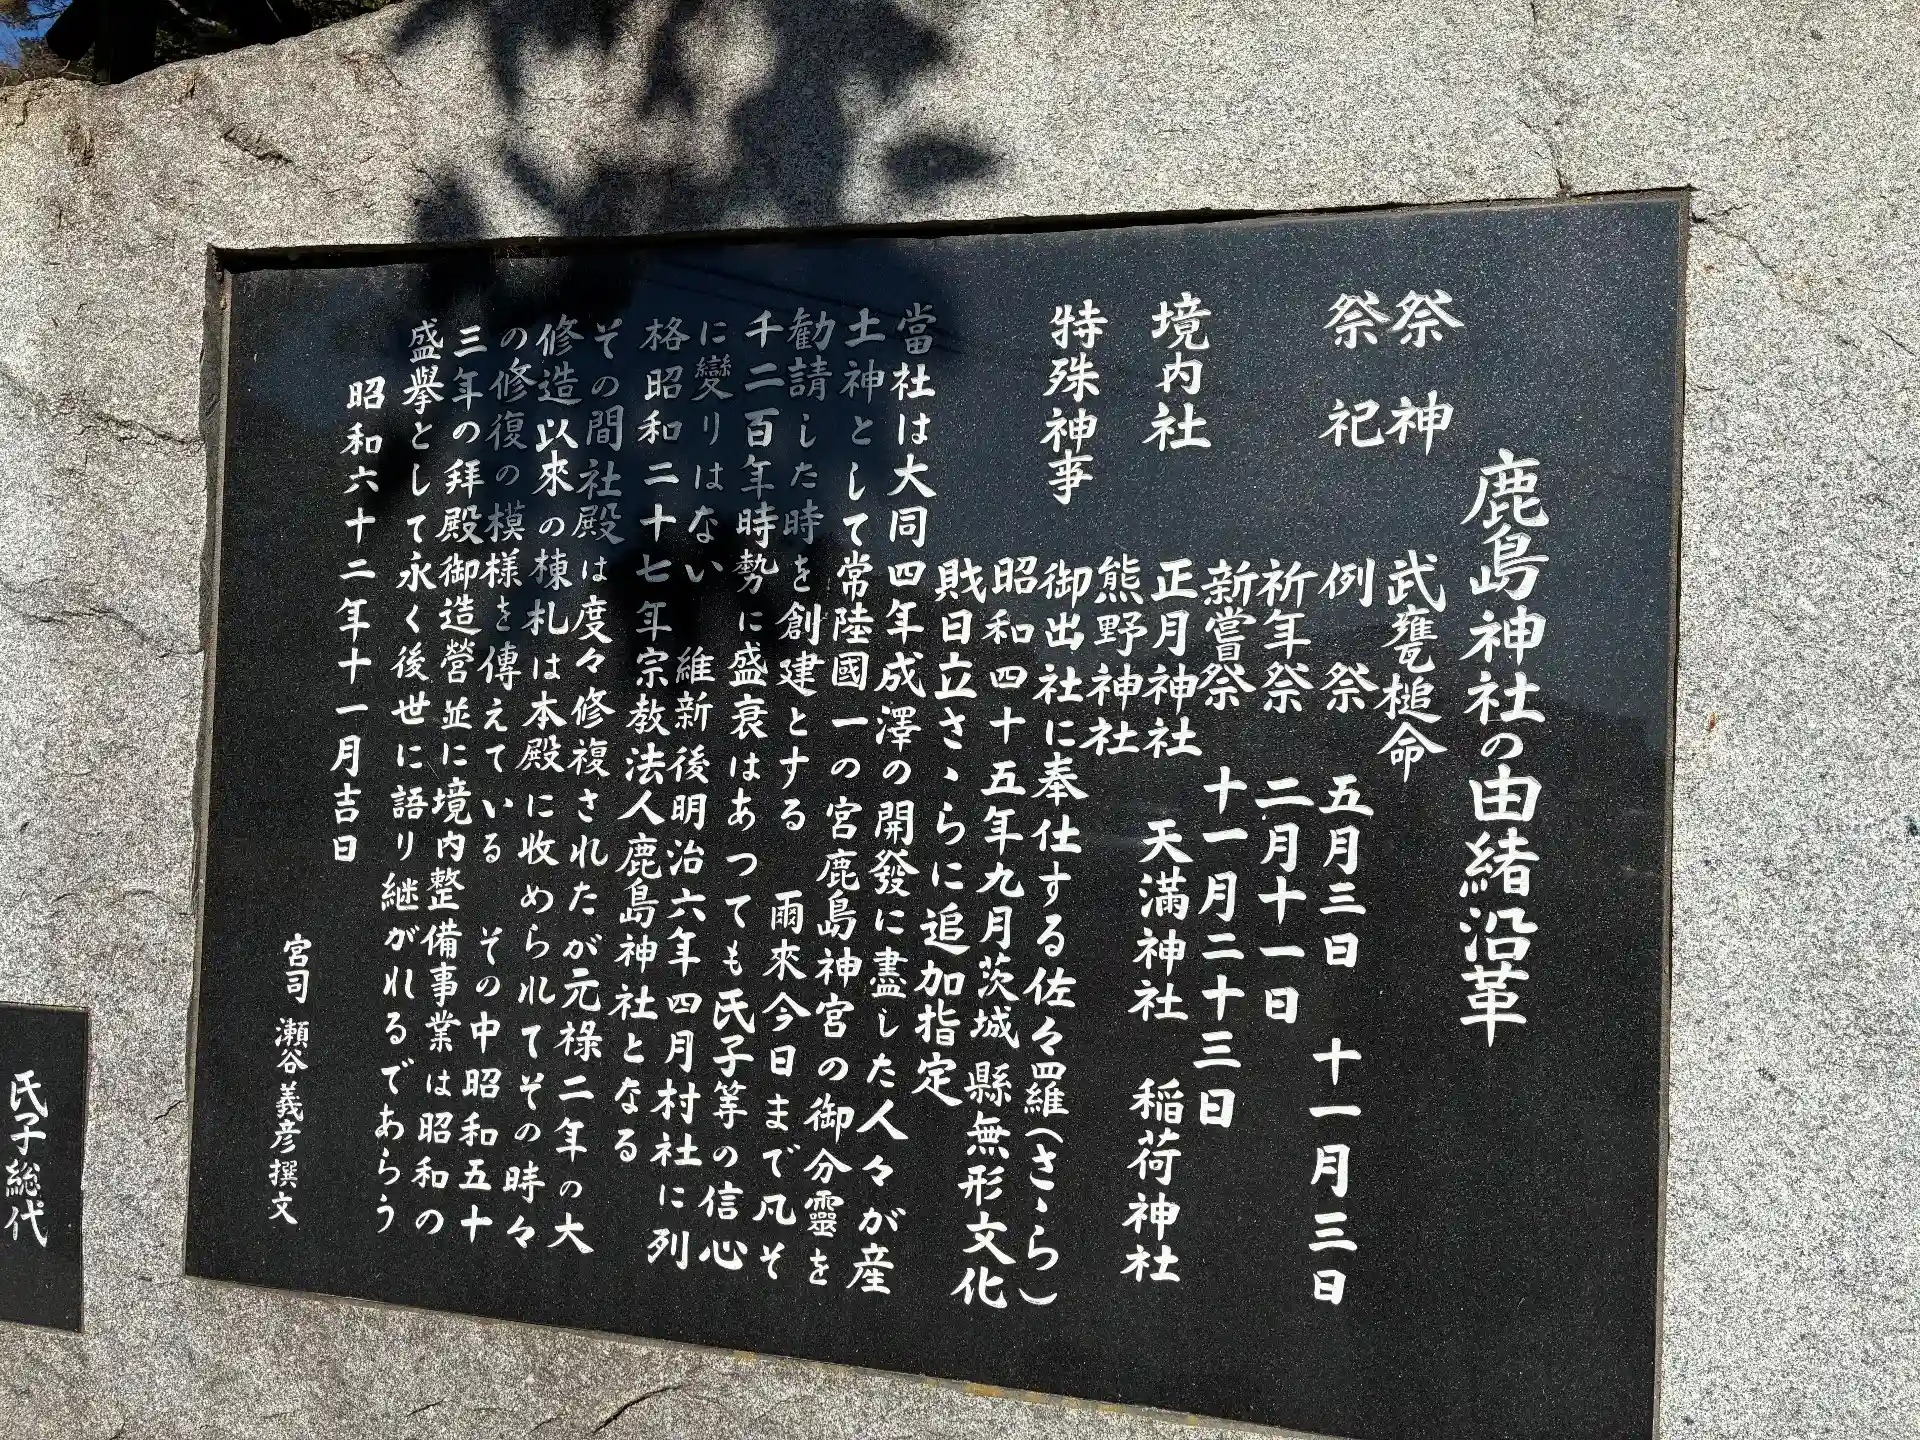 鹿島神社の由緒沿革
祭神 武甕槌命
祭祀 例祭 五月三日 十一月三日
祈年祭 二月十一日
新嘗祭 十一月二十三日
境内社 正月神社 天満神社 稲荷神社
熊野神社
特殊神事 御出社に奉仕する佐々羅(さゝら)
昭和四十五年九月茨城縣無形文化
財日立さゝらに追加指定
當社は大同四年成澤の開發に盡した人々が産
土神として常陸國一の宮鹿島神宮の御分靈を
勸請した時を創建とする 爾來今日まで凡そ
千二百年時勢に盛衰はあつても氏子等の信心
に變りはない 維新後明治六年四月村社に列
格昭和二十七年宗教法人鹿島神社となる
その間社殿は度々修複されたが元禄二年の大
修造以來の棟札は本殿に收められてその時々
の修復の模様を傳えている その中昭和五十
三年の拜殿御造營並に境内整備事業は昭和の
盛擧として永く後世に語り継がれるであらう
昭和六十二年十一月吉日
宮司 瀬谷義彦撰文
氏子総代